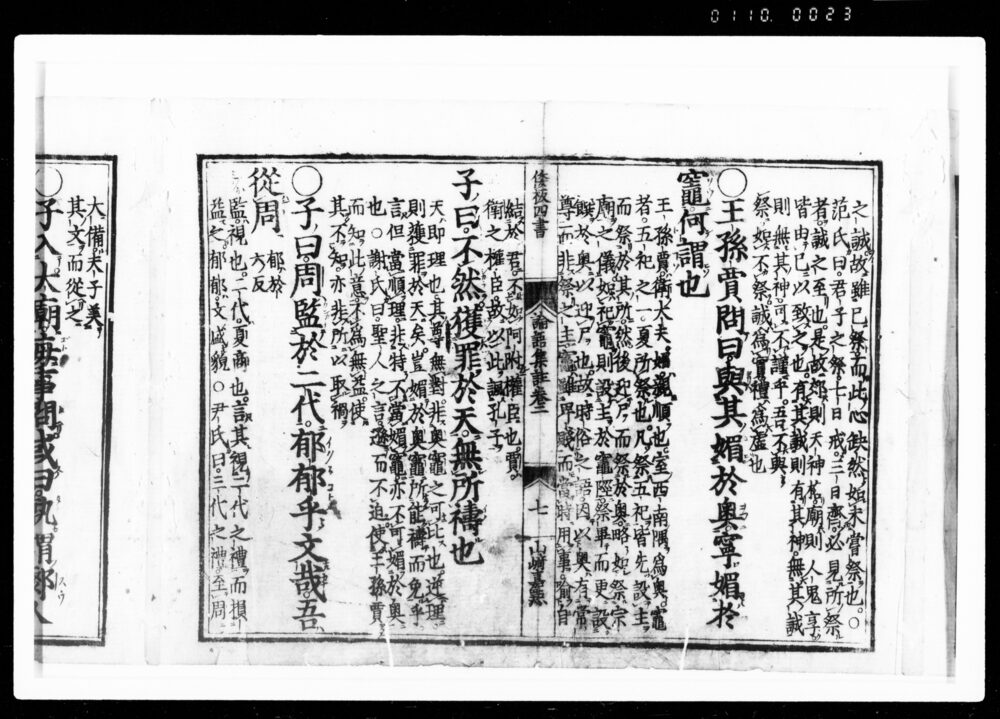 0110. 0023
之誠故雖已祭而此心缺然如未嘗祭也。○
范氏曰。君子之祭七日戒。三日齊。必見所祭
者。誠之至也。是故郊則天神格。廟則人鬼享。
皆由己以致之也。有其誠則有其神。無其誠
則無其神。可不謹乎。吾不與
祭。如不祭。誠爲實。禮爲虛也
○王孫賈問曰。與其媚於奧寧媚於
竈何謂也
王孫賈衛大夫。媚親順也。室西南隅爲奧。竈
者。五祀之一。夏所祭也。凡祭五祀皆先設主
而祭於其所。然後迎尸而祭於奧。略如祭宗
廟之儀。如祀竈則設主於竈陘。祭畢而更設
饌於奧以迎尸也。故時俗之語。因以奧有常
尊。而非祭之主。竈雖卑賤。而當時用事。喻自
修板四書
論語集註卷二
七
山崎嘉點
結於君。不如阿附權臣也。賈
衛之權臣。故以此諷孔子
子曰。不然獲罪於天。無所禱也
天即理也。其尊無對。非奧竈之可比也。逆理
則獲罪於天矣。豈媚於奧竈所能禱而免乎。
言但當順理。非特不當媚竈。亦不可媚於奧
也。○謝氏曰。聖人之言。遜而不迫。使王孫賈
而知此意。不爲無益。使
其不知。亦非所以取禍
○子曰。周監於二代。郁郁乎文哉。吾
從周
郁於
六反
監視也。二代夏商也。言其視二代之禮而損
益之。郁郁。文盛貌。○尹氏曰。三代之禮至周
大備。夫子美
其文而從之
○子入大廟每事問或曰。孰謂鄹人